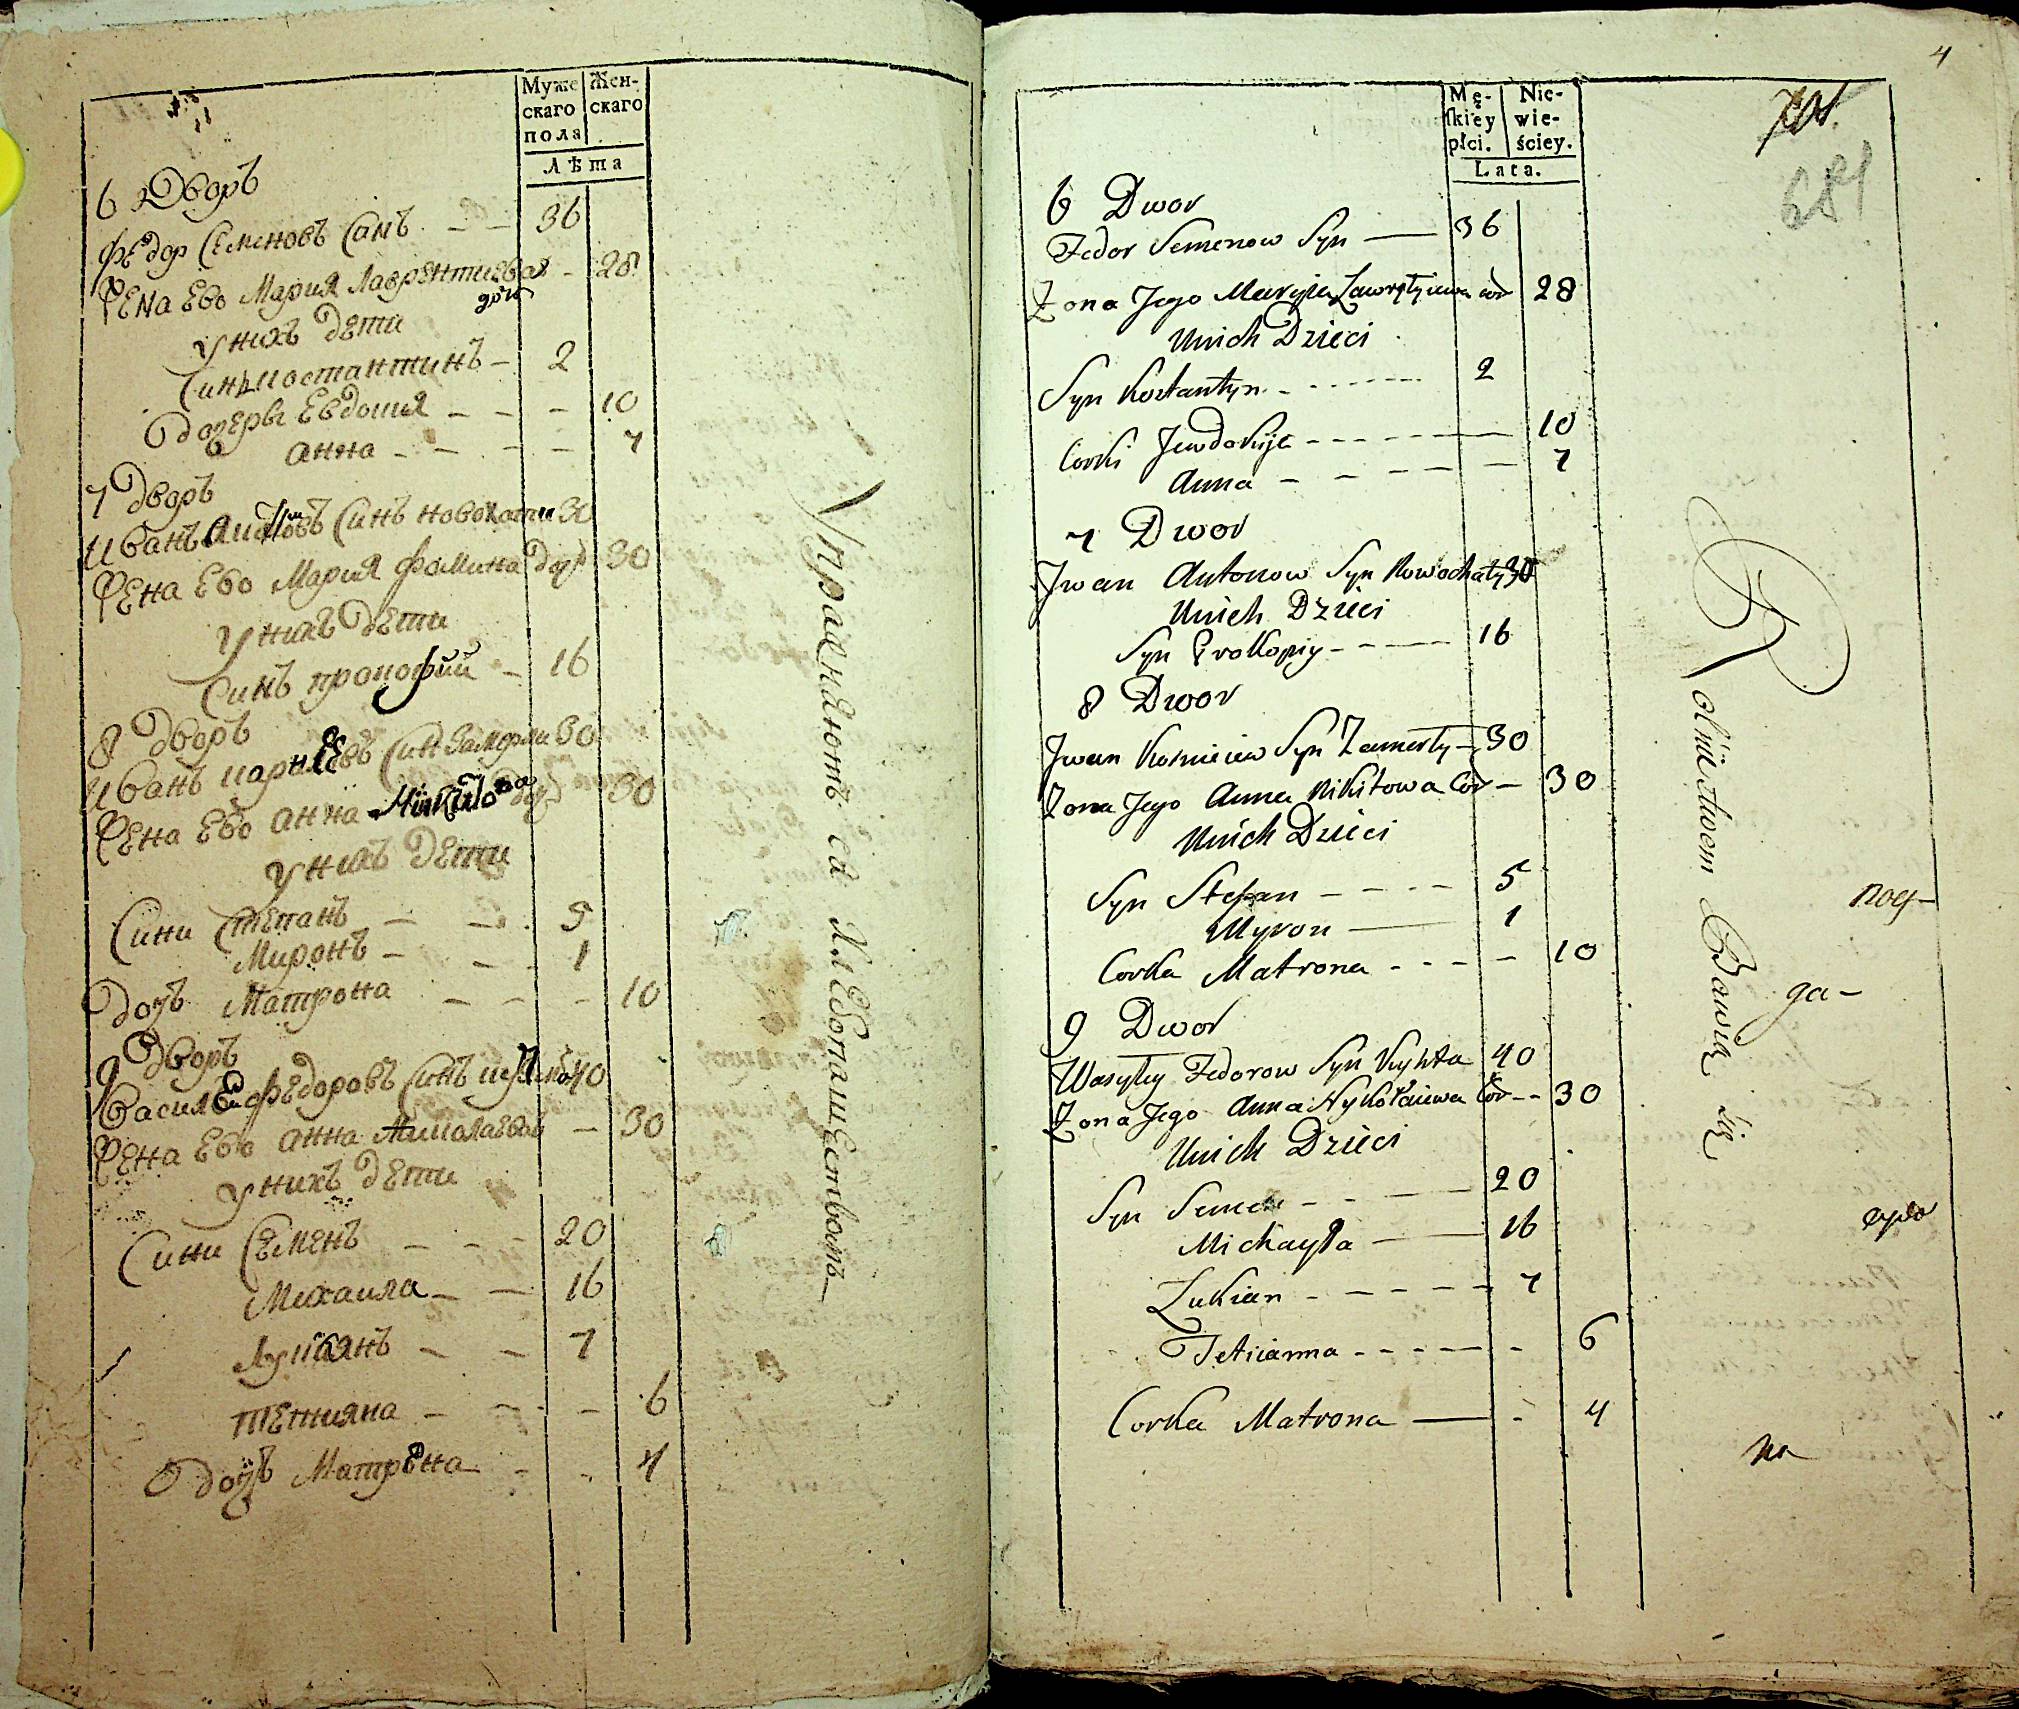 Муже
скаго
пола
Жен-
скаго
Лѣта
6 Дворъ
Федор Семеновъ Синъ — — 36
Жена Ево Мария Лаврентиева - 28
дочь
У нихъ дети
Синъ Костантинъ - 2
дочеры Евдокия — — — 10
анна - — - — 7
7 дворъ
Иванъ Антоновъ Синъ Новохатни 30
Жена Ево Мария Фомина доч 30
У нихъ дети
Синъ прокофий — 16
8 дворъ
Иванъ Син 30
Жена Ево анна 30
У нихъ дети
Сини Степанъ — — 5
Миронъ — — 1
Дочъ Матрона — — - 10
9 Дворъ
Василей Федоровъ Синъ 40
Жена Ево анна Николаева — 30
У нихъ дети
Сини Семенъ — — - 20
Михаила — — 16
Лукиянъ — — 7
тетияна — — - — 6
дочъ Матрона - - 4
Упражняютъ ся Хлебопашествомъ
4
681
Mę-
skiey
płci.
Nie-
wie-
ściey.
Lata.
6 Dwor
Fedor Semenow Syn — 36
Zona Jego Maryia Cor 28
Unich Dzieci
Syn Kostantyn - - - - - - 2
Corki Jewdokija - - - - - — 10
Anna - - - - - - 7
7 Dwor
Jwan Antonow Syn Nowochaty 30
Unich Dzieci
Syn Prokopiy - - - — 16
8 Dwor
Jwan Syn Zamerły — 30
Zona Jego Anna Nikitowa Cor — 30
Unich Dzieci
Syn Stepan - - - - 5
Myron — 1
Corka Matrona - - - - 10
9 Dwor
Wasyley Fedorow Syn 40
Zona Jego Anna Nykołaiewa Cor - - 30
Unich Dzieci
Syn Semen - - - — 20
Michayła — — 16
Łukian - - - - - 7
Tetiianna - - - - - - 6
Corka Matrona — - 4
Rolnictwem Bawią się
ga —
на